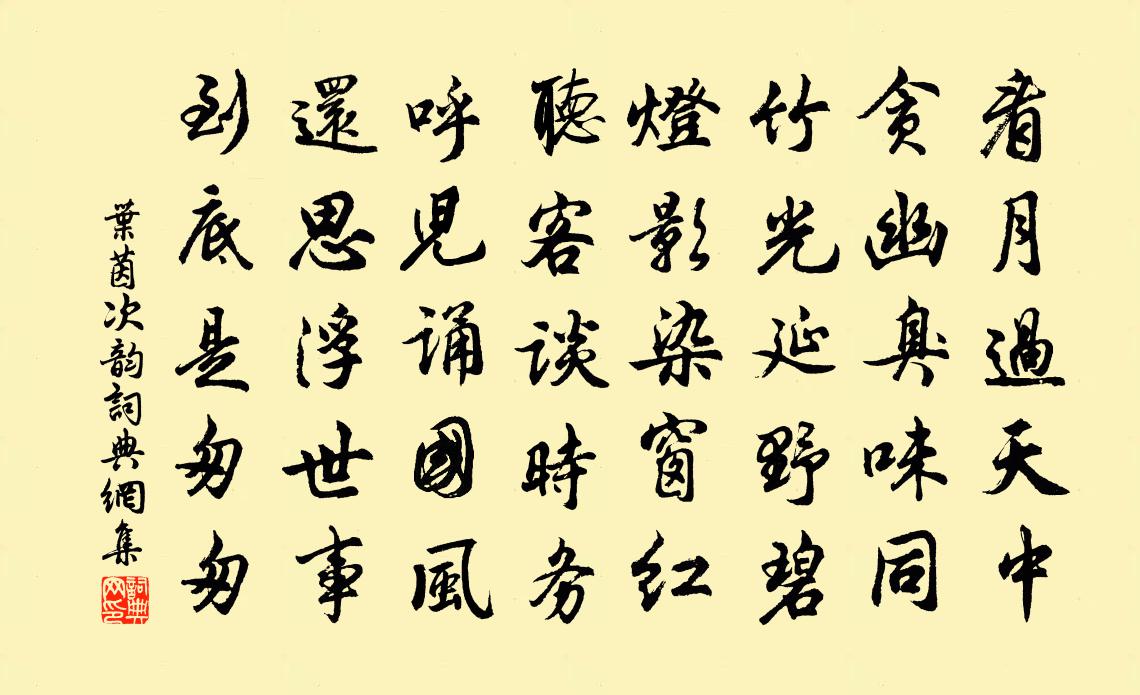 看月過天中
貪幽臭味同
竹光延野碧
燈影染窗紅
聽客談時务
呼児誦國風
還思浮世事
到底是匆匆
葉茵次韵詞典網集
詞典网印